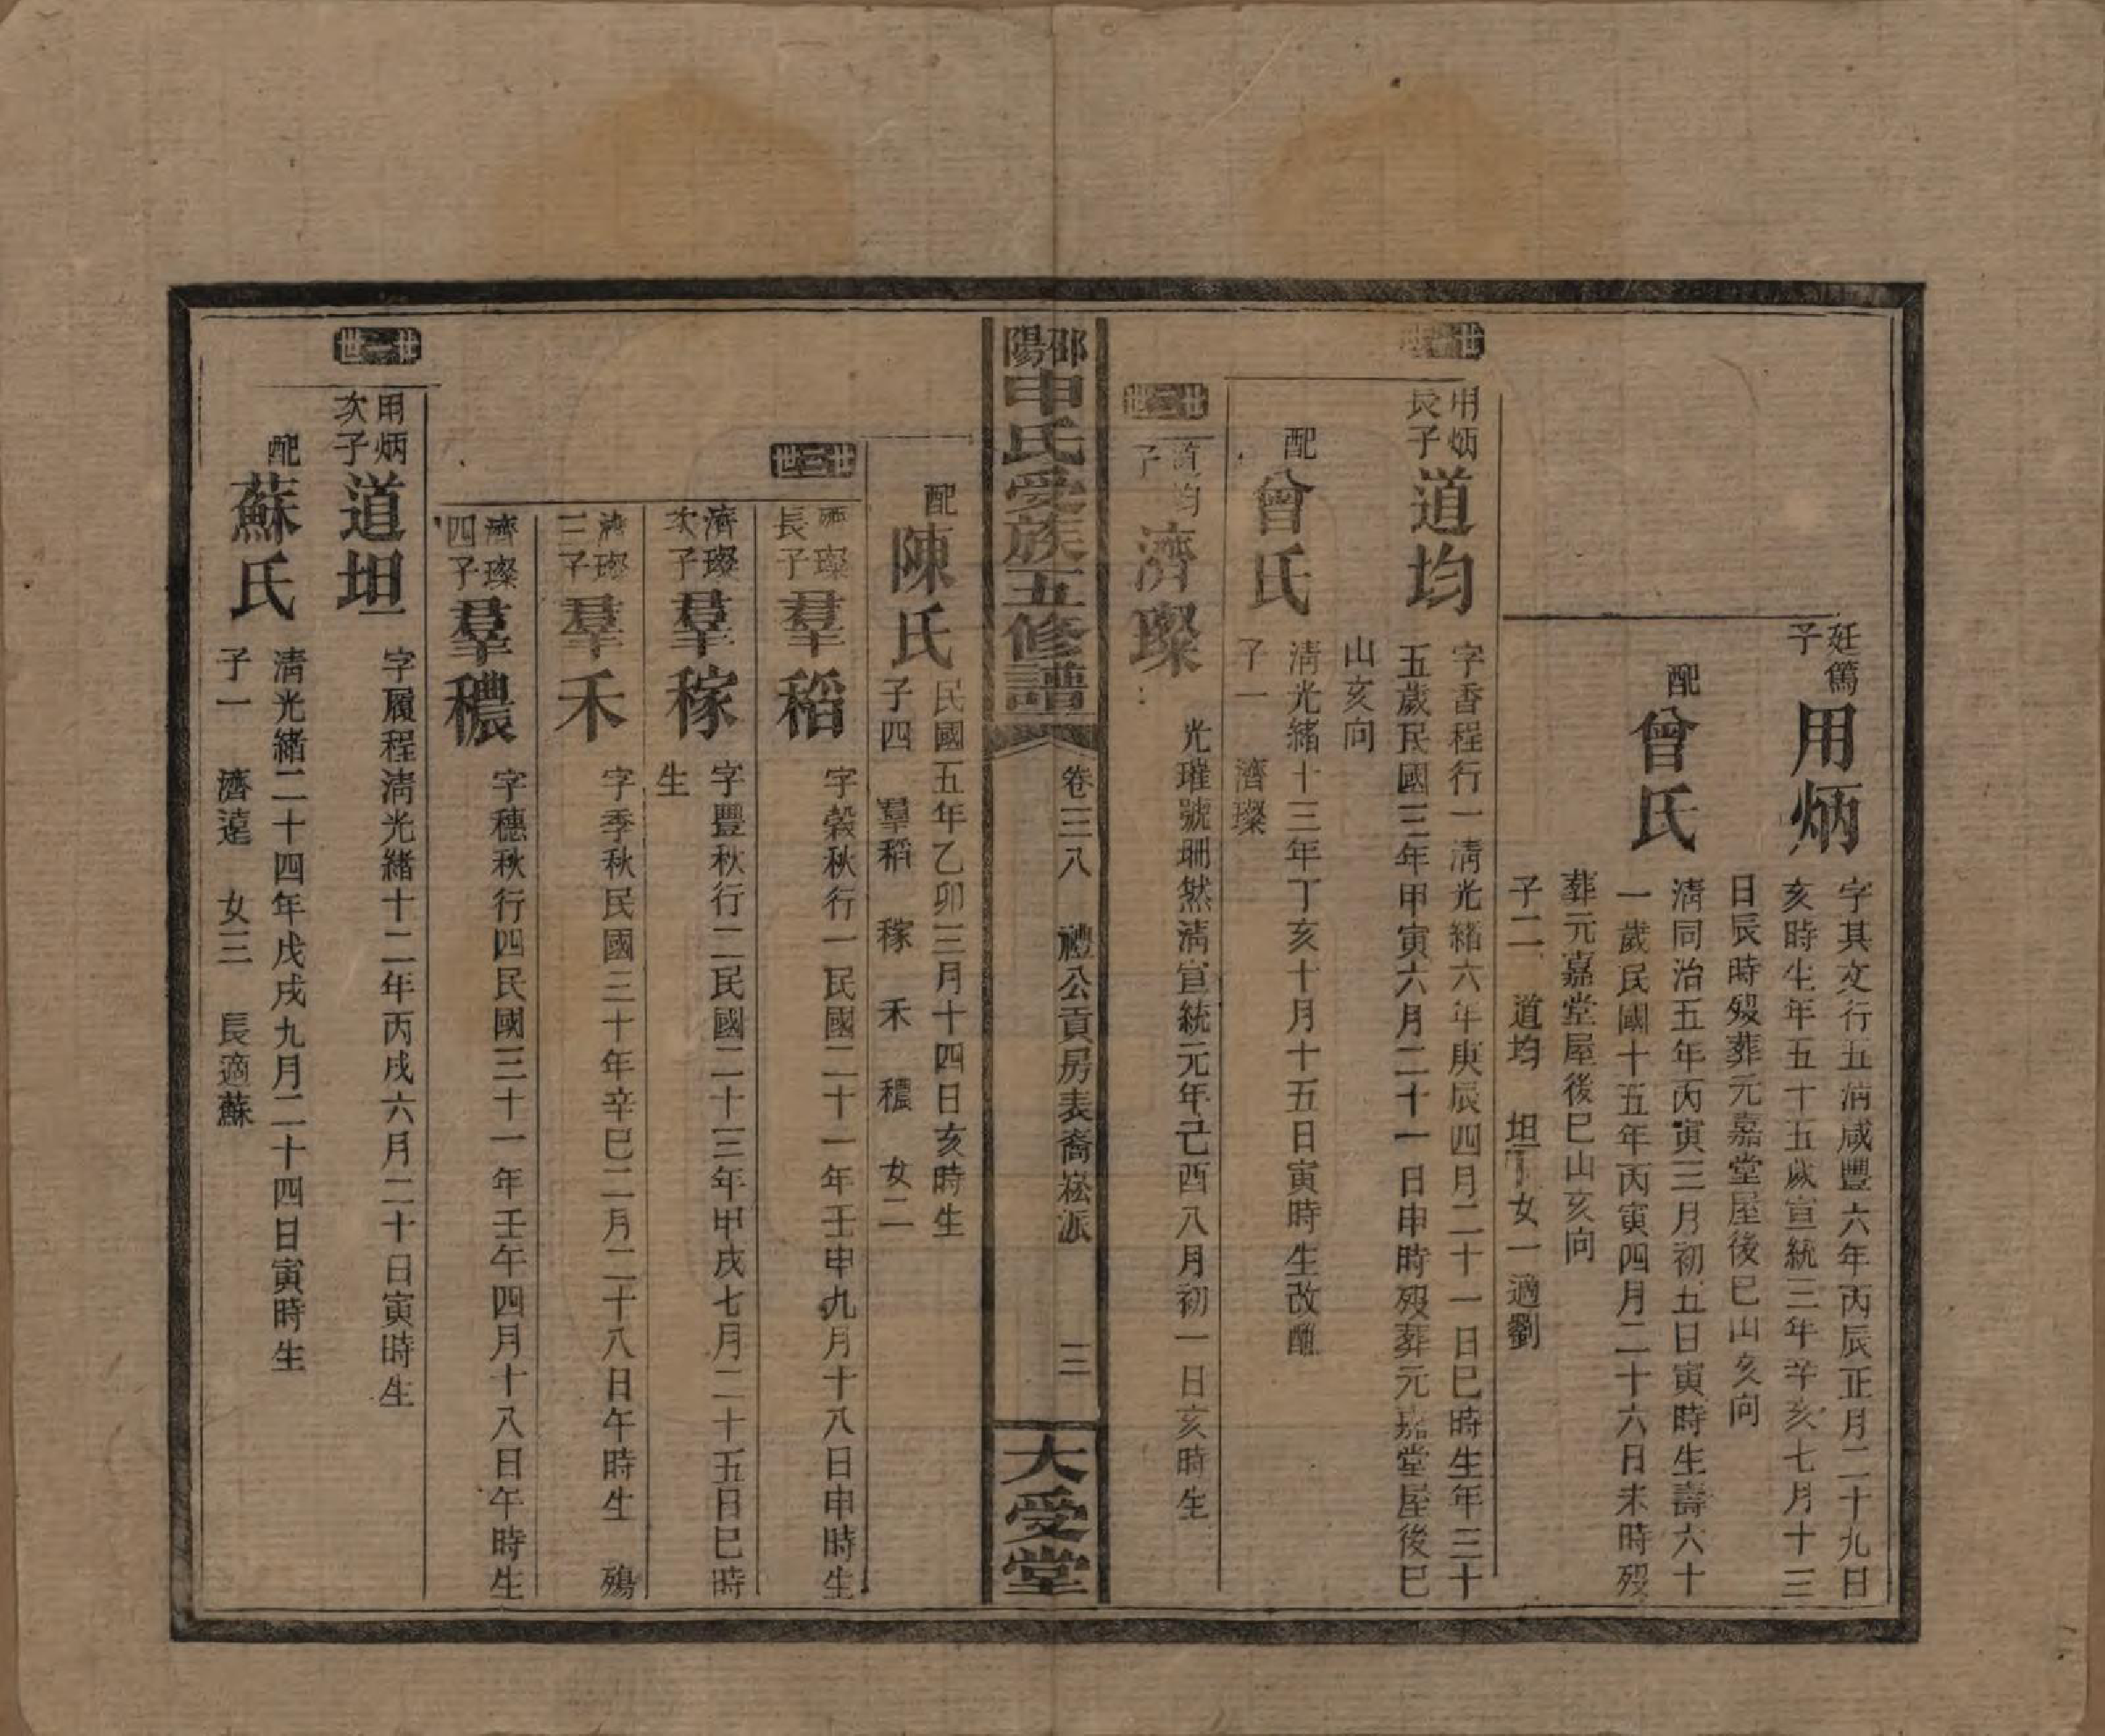 廷篤
子
用炳
字其文行五淸咸豐六年丙辰正月二十九日
亥時生年五十五歲宣統三年辛亥七月十三
日辰時歿葬元嘉堂屋後巳山亥向
配
曾氏
淸同治五年丙寅三月初五日寅時生壽六十
一歲民國十五年丙寅四月二十六日未時歿
葬元嘉堂屋後巳山亥向
子二 道均 坦 女一適劉
用炳
長子
道均
字香程行一淸光緒六年庚辰四月二十一日巳時生年三十
五歲民國三年甲寅六月二十一日申時歿葬元嘉堂屋後巳
山亥向
配
曾氏
淸光緒十三年丁亥十月十五日寅時生改醮
子一 濟璨
廿二世
道均
子
濟璨
光璀號珊然淸宣統元年己酉八月初一日亥時生
邵陽
申氏受族五修譜
卷三八 禮公貢房表裔崧派 三
大受堂
配
陳氏
民國五年乙卯三月十四日亥時生
子四 羣稻 稼 禾 穠 女二
廿三世
濟璨
長子
羣稻
字穀秋行一民國二十一年壬申九月十八日申時生
濟璨
次子
羣稼
字豐秋行二民國二十三年甲戌七月二十五日巳時
生
濟璨
三子
羣禾
字季秋民國三十年辛巳二月二十八日午時生 殤
濟璨
四子
羣穠
字穗秋行四民國三十一年壬午四月十八日午時生
廿一世
用炳
次子
道坦
字履程淸光緒十二年丙戌六月二十日寅時生
配
蘇氏
淸光緒二十四年戊戌九月二十四日寅時生
子一 濟遠 女三 長適蘇